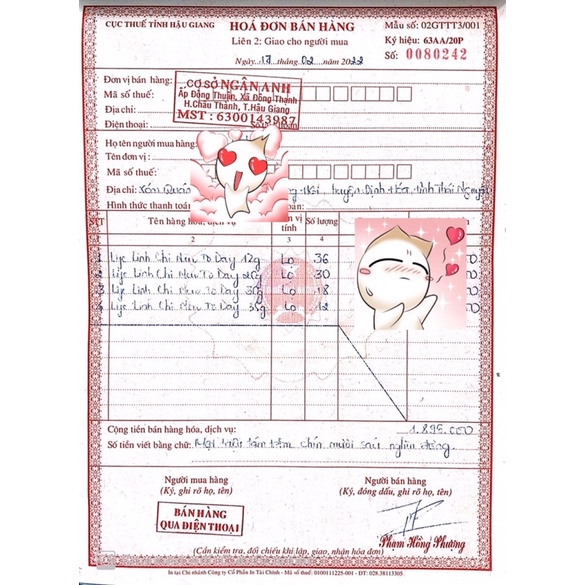 CỤC THUẾ TỈNH HẬU GIANG
HOÁ ĐƠN BÁN HÀNG
Liên 2: Giao cho người mua
Ngày 17 tháng 02 năm 2022
Mẫu số: 02GTTT3/001
Ký hiệu: 63AA/20P
Số: 0080242
Đơn vị bán hàng:
Mã số thuế:
Địa chỉ:
Điện thoại:
CƠ SỞ NGÂN ANH
Ấp Đông Thuận, Xã Đông Thạnh
H.Châu Thành, T.Hậu Giang
MST: 6300143987
Họ tên người mua hàng
Tên đơn vị
Mã số thuế:
Địa chỉ: Xóm Huyện Định Hóa, tỉnh Thái Nguyên
Hình thức thanh toán
STT Tên hàng hóa, Số lượng
tính
2 3
1 Linh Chi 12g Lọ 36
2 Linh Chi Lọ 30
3 Linh Chi 30g Lọ 18
4 Linh Chi 35g Lọ 12
Cộng tiền bán hàng hóa, dịch vụ: 1.896.000
Số tiền viết bằng chữ: Một triệu tám trăm chín mươi sáu nghìn đồng
Người mua hàng
(Ký, ghi rõ họ, tên)
Người bán hàng
(Ký, đóng dấu, ghi rõ họ, tên)
BÁN HÀNG
QUA ĐIỆN THOẠI
Phạm Hồng Phượng
(Cần kiểm tra, đối chiếu khi lập, giao, nhận hóa đơn)
In tại Chi nhánh Công ty Cổ Phần In Tài Chính - Mã số thuế: 0100111225-001 - ĐT: 028.38113305